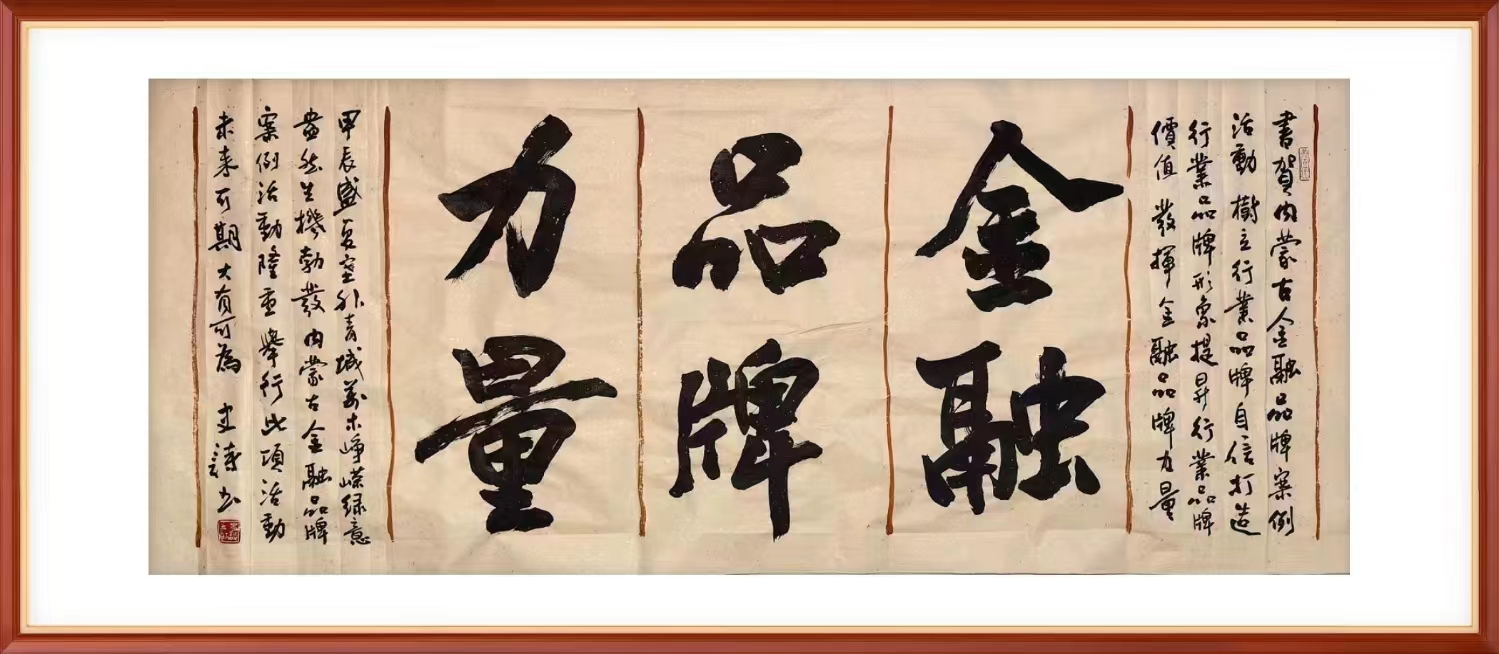 書賀内蒙古金融品牌案例
活動樹立行業品牌自信打造
行業品牌形象提昇行業品牌
價值發揮金融品牌力量
金融
品牌
力量
甲辰盛夏塞外青城萬木崢嶸緑意
盎然生機勃發内蒙古金融品牌
案例活動隆重舉行此項活動
未来可期大有可為 史